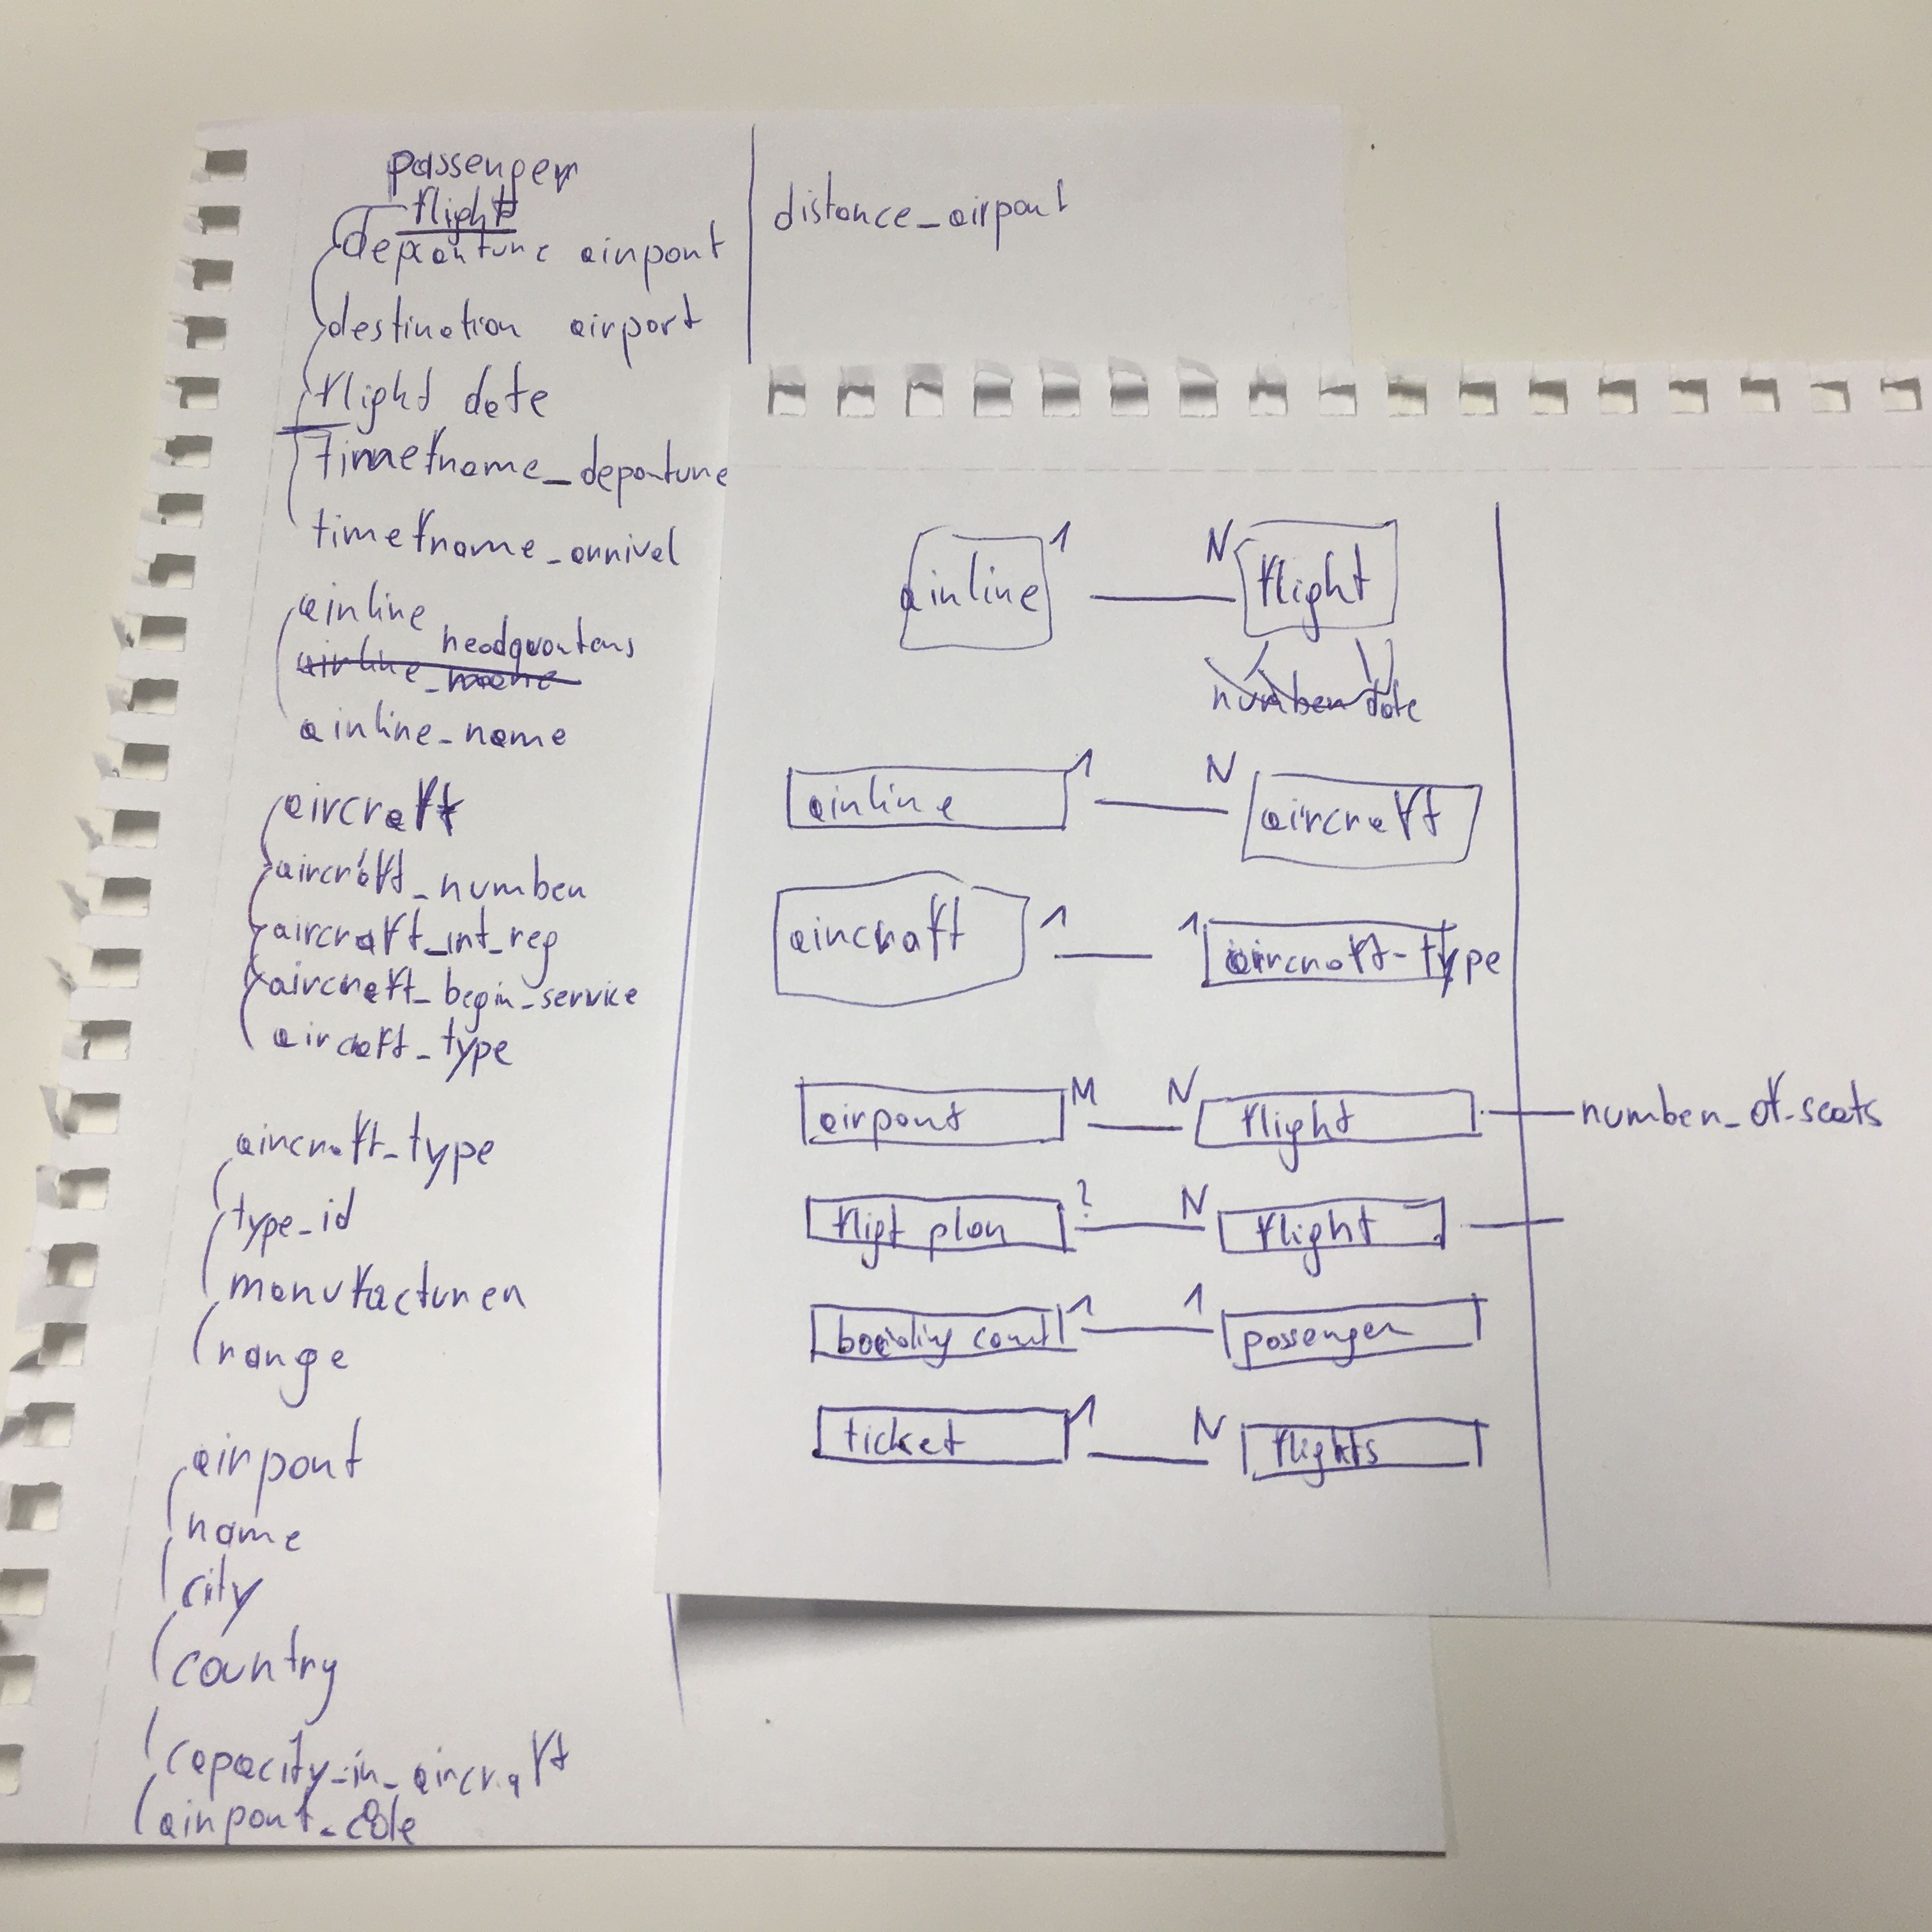 passenger
flight
departure airport
destination airport
flight date
timeframe_departure
timeframe_arrival
airline
headquarters
airline_name
airline_name
aircraft
aircraft_number
aircraft_int_reg
aircraft_begin_service
aircraft_type
aircraft_type
type_id
manufacturer
range
airport
name
city
country
capacity_in_aircraft
airport_code
distance_airport
airline 1 N flight
number date
airline 1 N aircraft
aircraft 1 1 aircraft-type
airport M N flight number_of_seats
fligt plan ? N flight
1 1 passenger
ticket 1 N flights